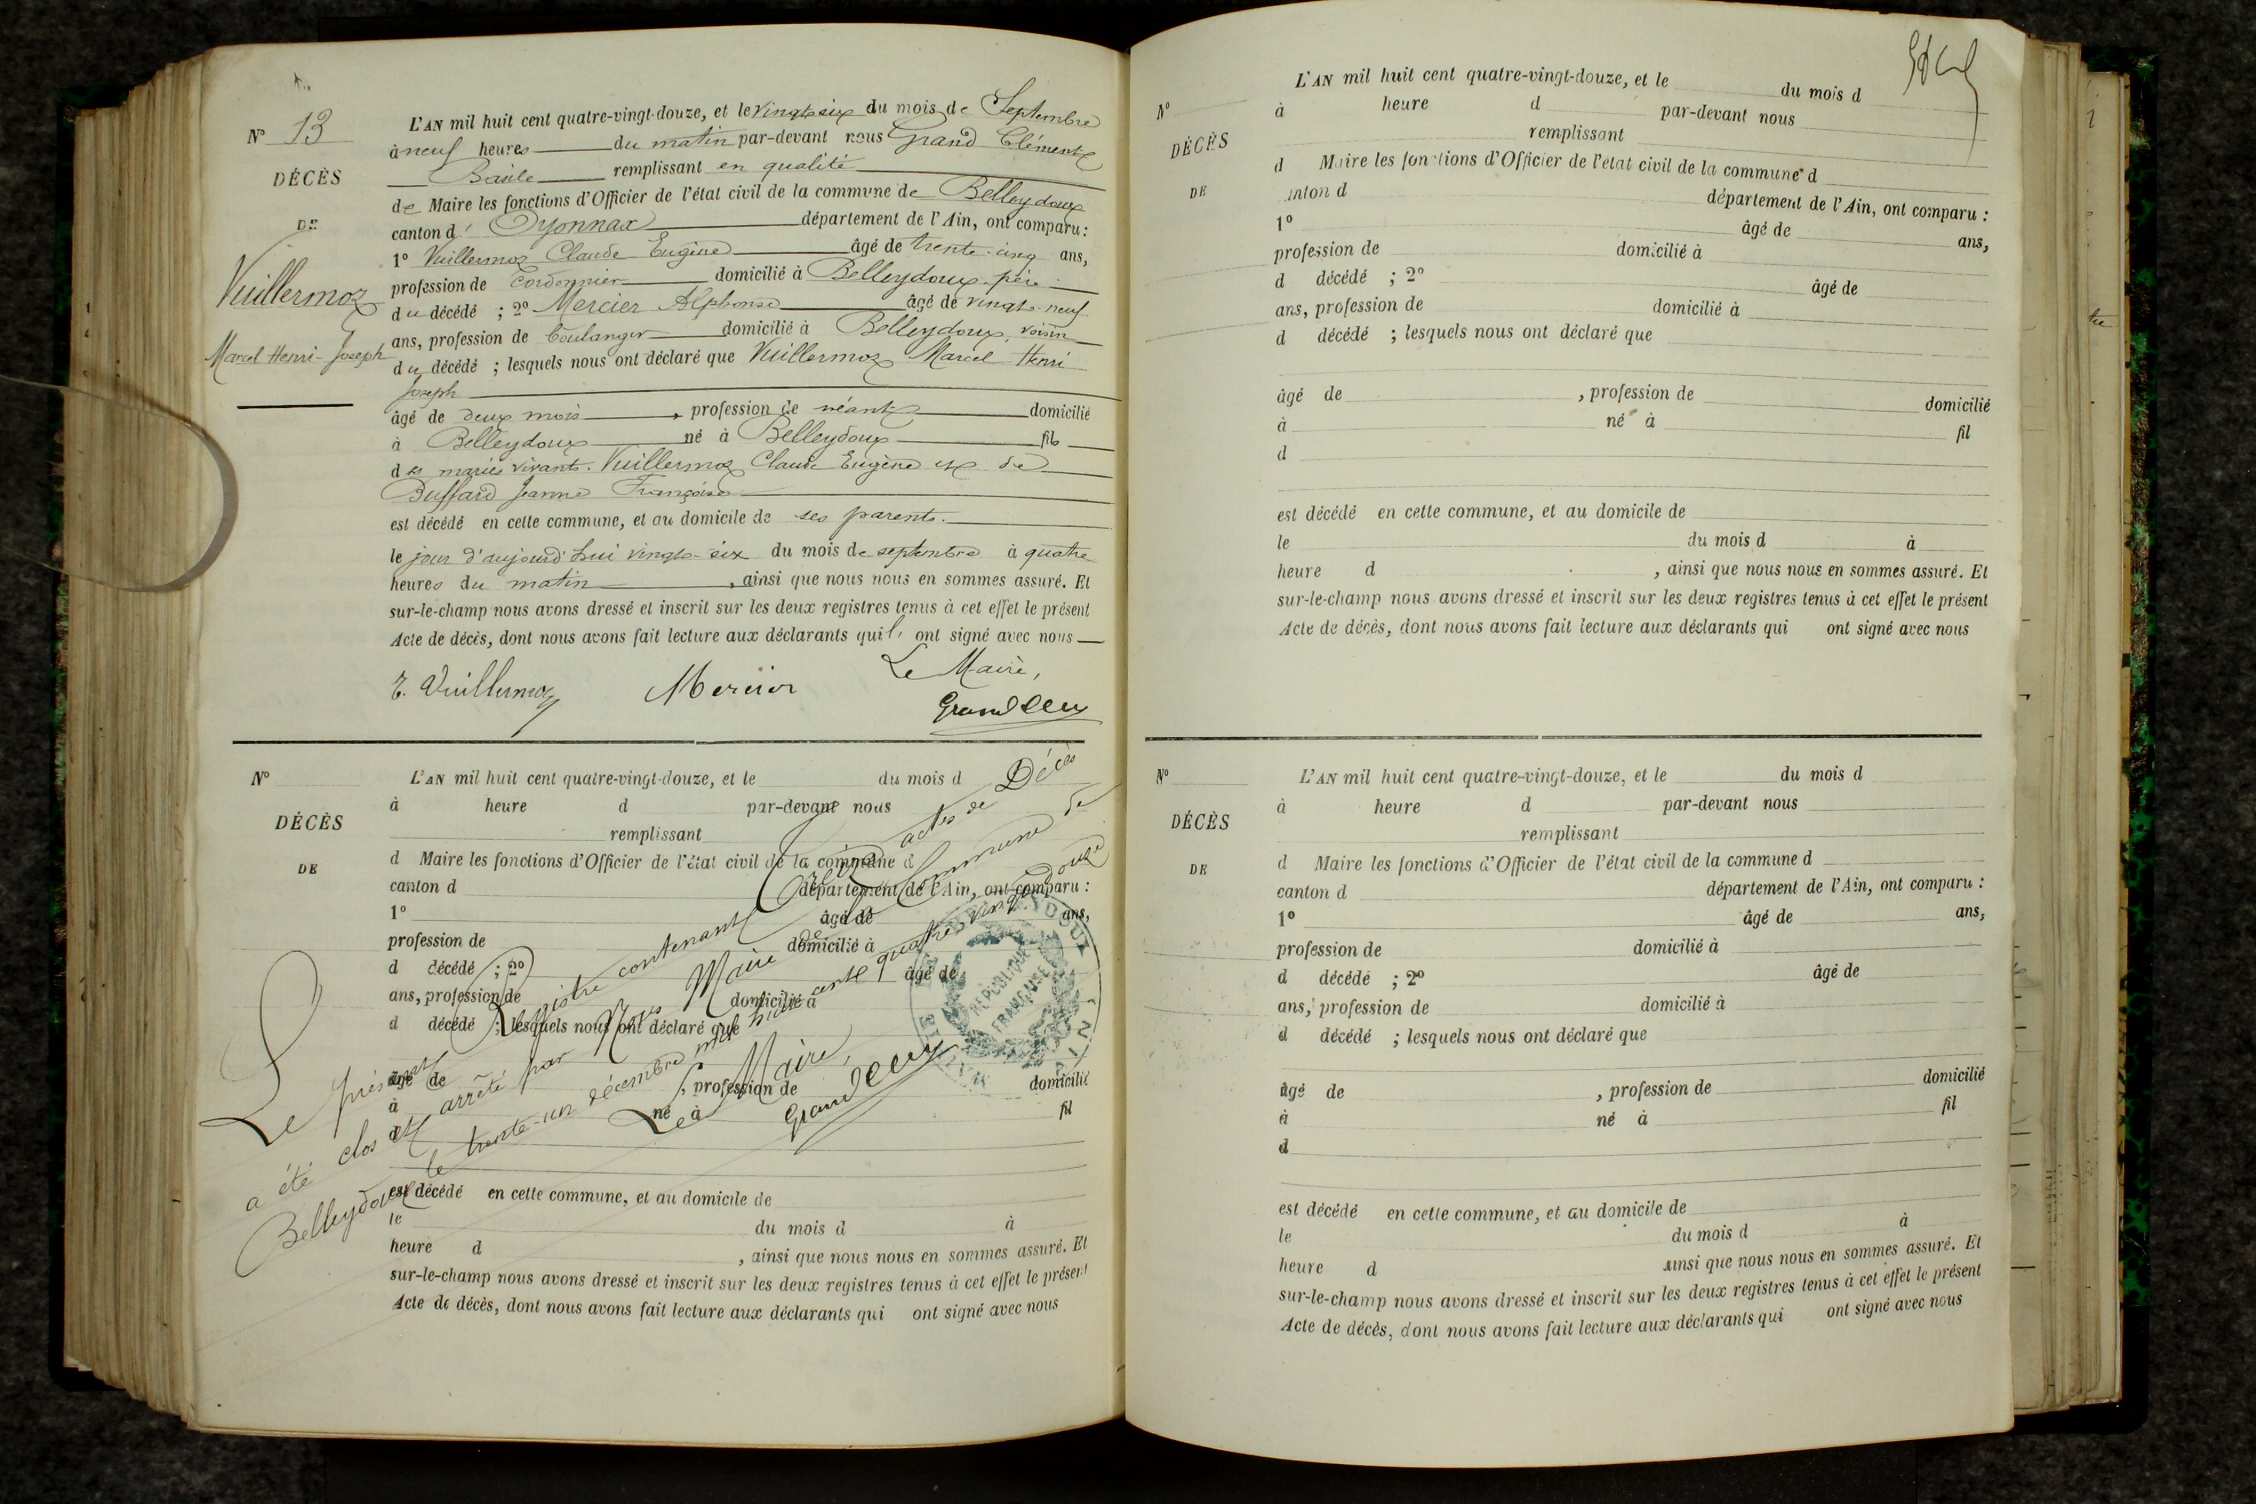 N° 13
DÉCÈS
DE
Vuillermoz
Marcel Henri-Joseph
L'AN mil huit cent quatre-vingt-douze, et le vingt six du mois de Septembre
à neuf heures du matin par-devant nous Grand Clément
Basile remplissant en qualité
de Maire les fonctions d'Officier de l'état civil de la commune de Belleydoux
canton d' Oyonnax département de l'Ain, ont comparu :
1° Vuillermoz Claude Eugène âgé de trente-cinq ans,
profession de Cordonnier domicilié à Belleydoux, père
du décédé ; 2° Mercier Alphonse âgé de vingt-neuf
ans, profession de boulanger domicilié à Belleydoux, voisin
du décédé ; lesquels nous ont déclaré que Vuillermoz Marcel Henri
Joseph
âgé de deux mois, profession de néant domicilié
à Belleydoux né à Belleydoux fils
des mariés vivants Vuillermoz Claude Eugène et de
Buffard Jeanne Françoise
est décédé en cette commune, et au domicile de ses parents.
le jour d'aujourd'hui vingt-six du mois de septembre à quatre
heures du matin, ainsi que nous nous en sommes assuré. Et
sur-le-champ nous avons dressé et inscrit sur les deux registres tenus à cet effet le présent
Acte de décès, dont nous avons fait lecture aux déclarants qui ont signé avec nous
Le Maire,
E. Vuillermoz Mercier
Grand Clém
N°
DÉCÈS
DE
L'AN mil huit cent quatre-vingt-douze, et le du mois d
à heure d par-devant nous
remplissant
d Maire les fonctions d'Officier de l'état civil de la commune d
canton d département de l'Ain, ont comparu :
1° âgé de ans,
profession de domicilié à
d décédé ; 2° âgé de
ans, profession de domicilié à
d décédé ; lesquels nous ont déclaré que
âgé de , profession de domicilié
à né à fil
d
est décédé en cette commune, et au domicile de
le du mois d à
heure d , ainsi que nous nous en sommes assuré. Et
sur-le-champ nous avons dressé et inscrit sur les deux registres tenus à cet effet le présent
Acte de décès, dont nous avons fait lecture aux déclarants qui ont signé avec nous
Le présent Registre contenant treize actes de Décès
a été clos et arrêté par Nous Maire de la Commune de
Belleydoux le trente-un décembre mil huit cent quatre vingt douze
Le Maire,
Grand Clém
RÉPUBLIQUE
FRANÇAISE
N°
DÉCÈS
DE
L'AN mil huit cent quatre-vingt-douze, et le du mois d
à heure d par-devant nous
remplissant
d Maire les fonctions d'Officier de l'état civil de la commune d
canton d département de l'Ain, ont comparu :
1° âgé de ans,
profession de domicilié à
d décédé ; 2° âgé de
ans, profession de domicilié à
d décédé ; lesquels nous ont déclaré que
âgé de , profession de domicilié
à né à fil
d
est décédé en cette commune, et au domicile de
le du mois d à
heure d , ainsi que nous nous en sommes assuré. Et
sur-le-champ nous avons dressé et inscrit sur les deux registres tenus à cet effet le présent
Acte de décès, dont nous avons fait lecture aux déclarants qui ont signé avec nous
N°
DÉCÈS
DE
L'AN mil huit cent quatre-vingt-douze, et le du mois d
à heure d par-devant nous
remplissant
d Maire les fonctions d'Officier de l'état civil de la commune d
canton d département de l'Ain, ont comparu :
1° âgé de ans,
profession de domicilié à
d décédé ; 2° âgé de
ans, profession de domicilié à
d décédé ; lesquels nous ont déclaré que
âgé de , profession de domicilié
à né à fil
d
est décédé en cette commune, et au domicile de
le du mois d à
heure d ainsi que nous nous en sommes assuré. Et
sur-le-champ nous avons dressé et inscrit sur les deux registres tenus à cet effet le présent
Acte de décès, dont nous avons fait lecture aux déclarants qui ont signé avec nous